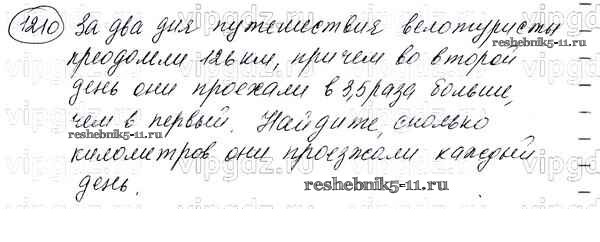 1210 За два дня путешествия велотуристы
reshebnik5-11.ru
преодолели 126 км, причем во второй
день они проехали в 3,5 раза больше,
чем в первый. Найдите, сколько
reshebnik5-11.ru
километров они проезжали каждый
день.
reshebnik5-11.ru